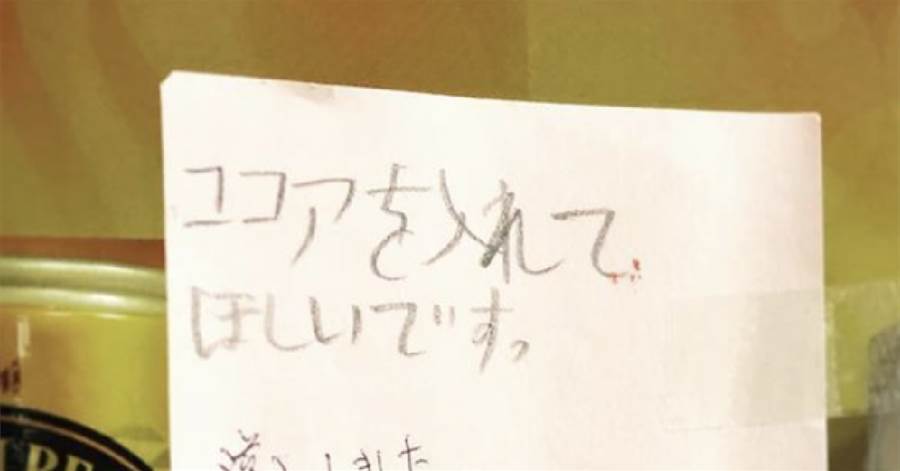 ココアを入れて
ほしいです。
導入しました